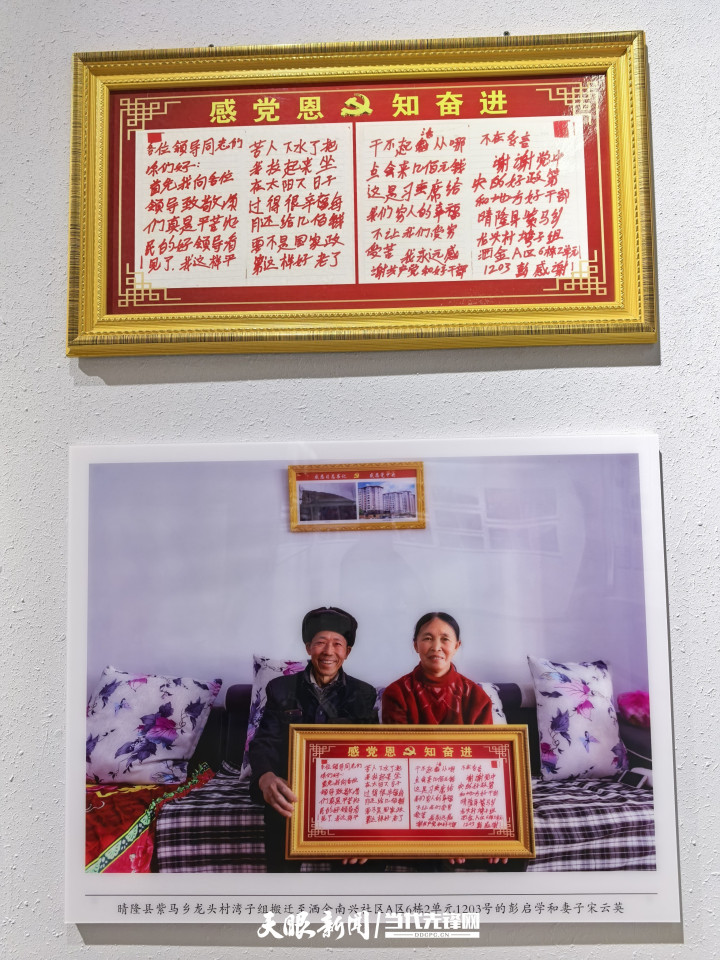 感党恩 知奋进
各位领导同志的
你们好:
首先我向各位
领导致敬你
们真是平苦的
民的好领导看
见了.我这样平
苦人下水了把
者拉起来坐
在太阳又日子
过得很幸福每
月还给几佰钱
要不是国家政
第这样好老了
干不起活从哪
点会来几佰元钱
这是习主席给
我们穷人的幸福
不让我们受穷
受苦 我永远感
谢共产党和好干部
不在多言
谢谢党中
央的好政第
和地方好干部
晴隆县紫马乡
龙头村湾子组
洒金A区6栋2单元
1203彭感谢!
感党恩 知奋进
晴隆县紫马乡龙头村湾子组搬迁至洒金南兴社区A区6栋2单元1203号的彭启学和妻子宋云英
天眼新闻 当代先锋网
DDCPC.CN